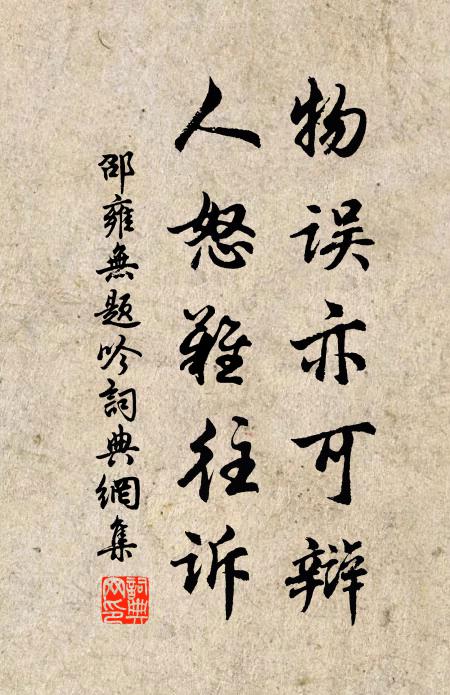 物误亦可辩
人怒难往诉
邵雍無题吟詞典網集
詞典網印